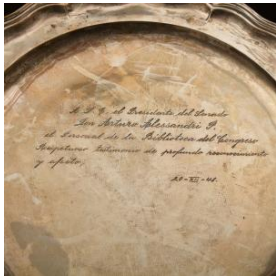 A S. E. el Presidente del Senado
Don Arturo Alessandri P.
el Personal de la Biblioteca del Congreso
Respetuoso testimonio de profundo reconocimiento
y afecto,
20-XII-45.